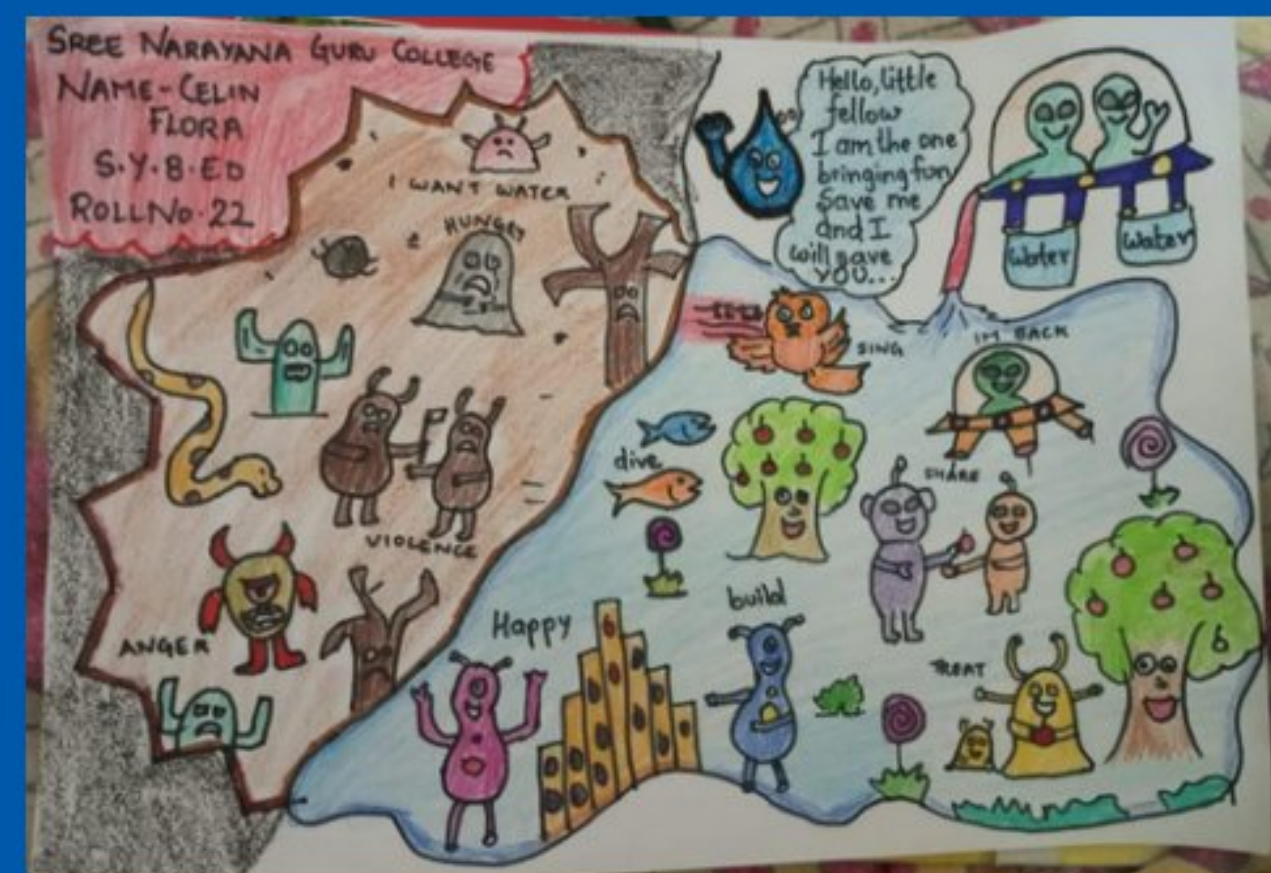 SREE NARAYANA GURU COLLEGE
NAME - CELIN
FLORA
S.Y.B.ED
ROLL No. 22
I WANT WATER
HUNGRY
VIOLENCE
ANGER
Hello, little
fellow
I am the one
bringing fun
Save me
and I
will save
YOU...
Water
Water
SING
IM BACK
dive
SHARE
Happy
build
TREAT